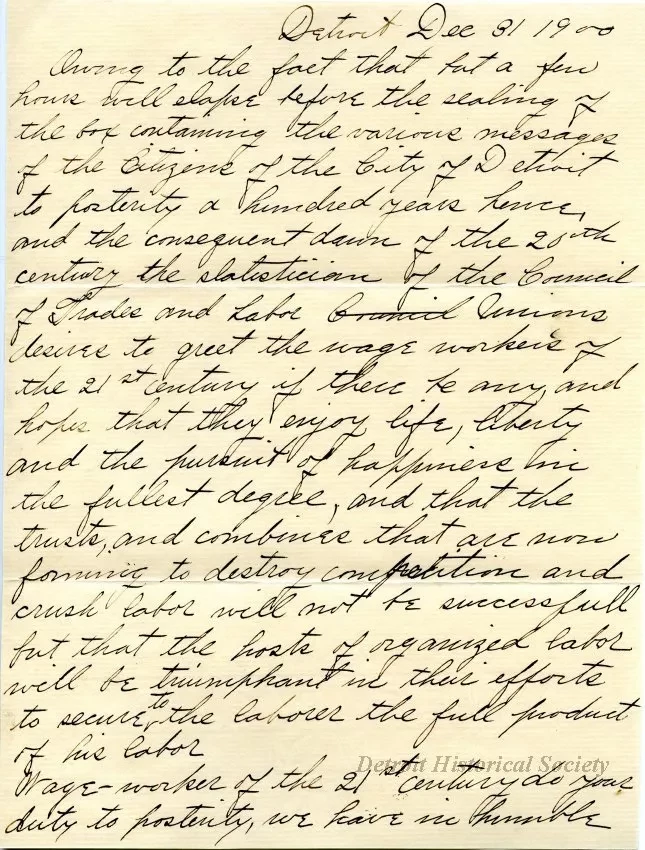 Detroit Dec 31 1900
Owing to the fact that but a few
hours will elapse before the sealing of
the box containing the various messages
of the Citizens of the City of Detroit
to posterity a hundred years hence,
and the consequent dawn of the 20th
century the statistician of the Council
of Trades and Labor Council Unions
desires to greet the wage workers of
the 21st Century if there be any, and
hopes that they enjoy life, liberty
and the pursuit of happiness in
the fullest degree, and that the
trusts, and combines that are now
forming to destroy competition and
crush labor will not be successfull
but that the hosts of organized labor
will be triumphant in their efforts
to secure, to the laborer the full product
of his labor
Detroit Historical Society
Wage-worker of the 21st Century do your
duty to posterity, we have in humble